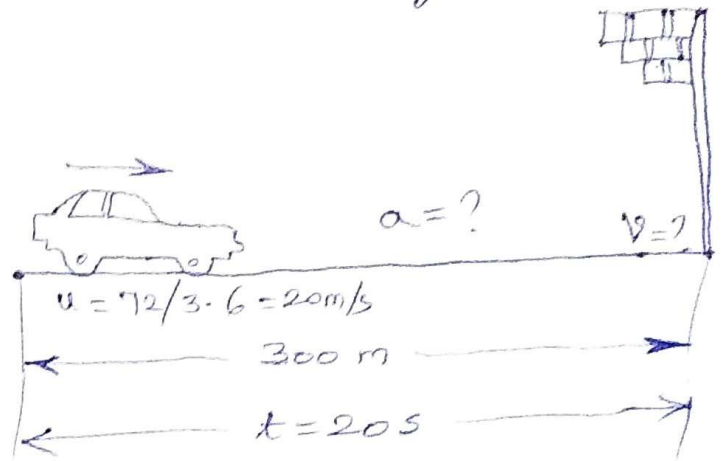 a = ?
V = ?
u = 72/3.6 = 20m/s
300 m
t = 20 s